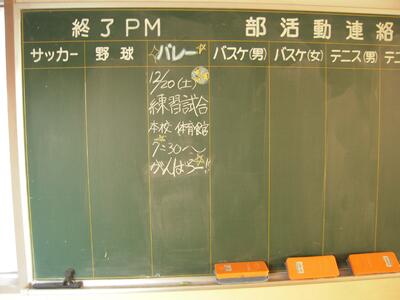 終了PM 部活動連絡
サッカー 野球 バレー バスケ(男) バスケ(女) テニス(男) テニ
12/20(土)
練習試合
本校 体育館
7:30〜
がんばろー!!